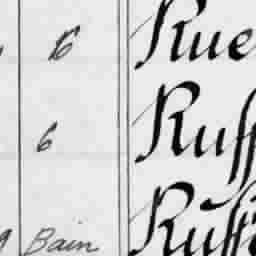 16 Rue
6 Ruff
Bain Ruff